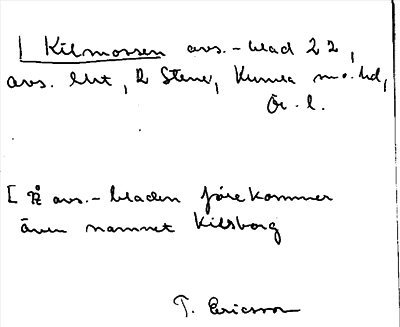 [ Kilmossen avs.-blad 22,
avs. lht, R Stene, Kumla m.o. hd,
Ör. l.
[ På avs.-bladen förekommer
även namnet Kilsborg
T. Ericsson